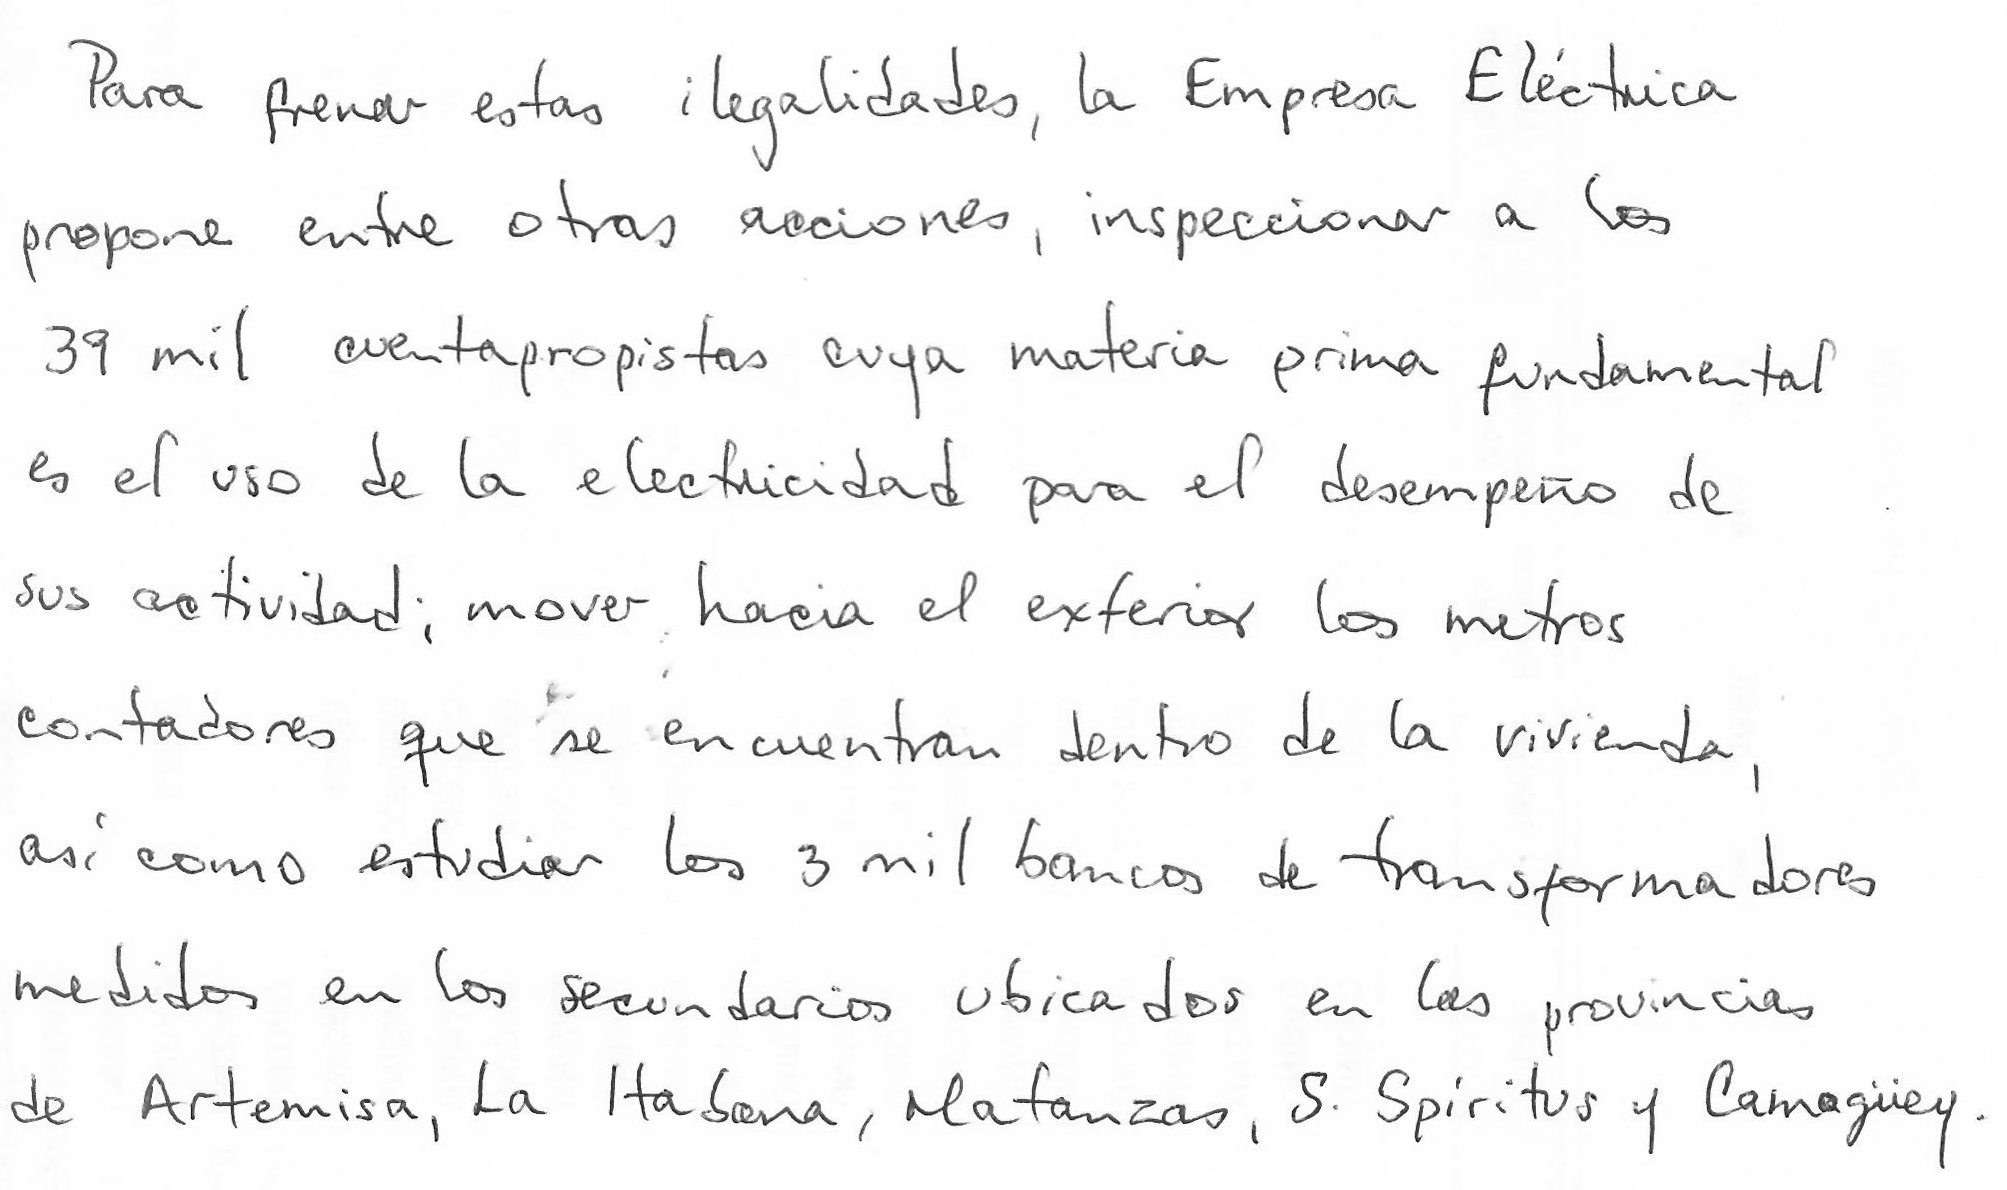 Para frenar estas ilegalidades, la Empresa Eléctrica
propone entre otras acciones, inspeccionar a los
39 mil cuentapropistas cuya materia prima fundamental
es el uso de la electricidad para el desempeño de
sus actividad; mover hacia el exterior los metros
contadores que se encuentran dentro de la vivienda,
así como estudiar los 3 mil bancos de transformadores
medidos en los secundarios ubicados en las provincias
de Artemisa, La Habana, Matanzas, S. Spíritus y Camagüey.